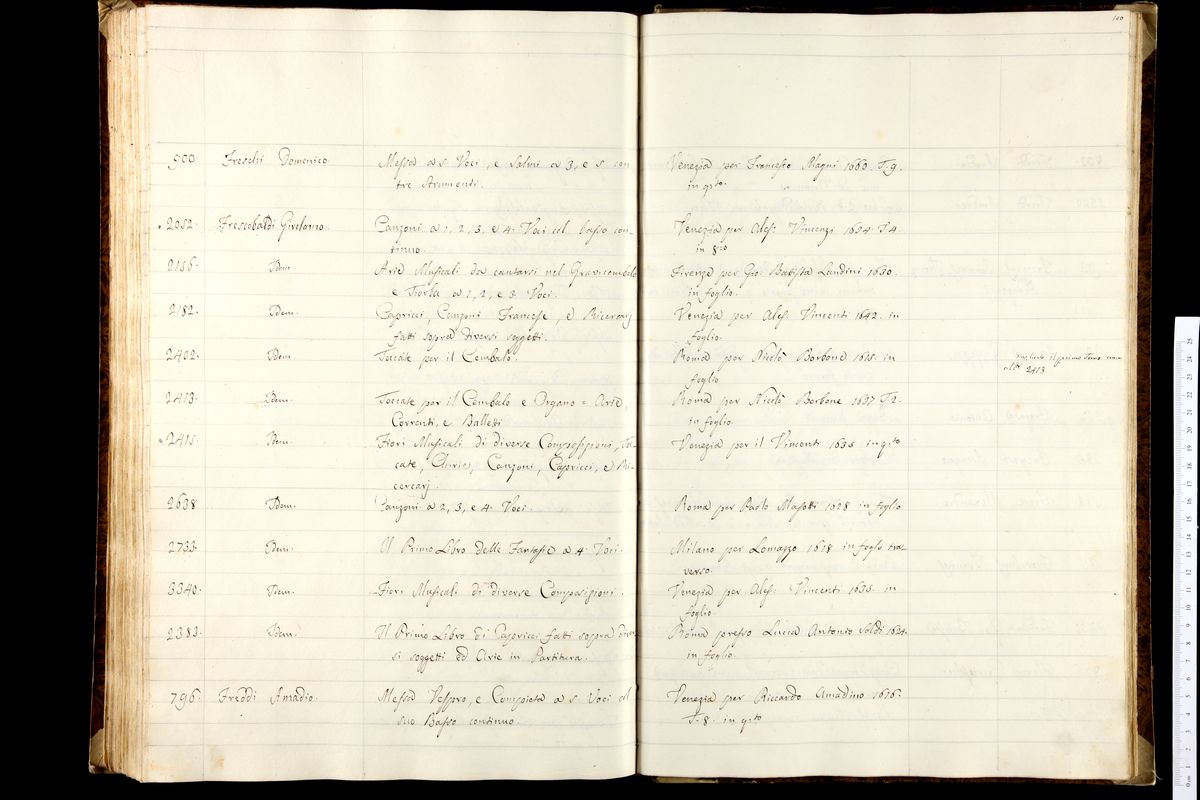 100
900. Freschi Domenico. Messa a 5. Voci, e Salmi a 3, e 5. con Venezia per Francesco Magni 1660. T. 9.
tre Strumenti. in 4to.
2052. Frescobaldi Girolamo. Canzoni a 1, 2, 3, e 4. Voci col basso con- Venezia per Aless. Vincenzi 1634. T. 4.
tinuo. in 8:o
2156. Idem. Arie Musicali da cantarsi nel Gravicembalo Firenze per Gio Batista Landini 1630.
e Tiorba a 1, 2, e 3 Voci. in foglio.
2182. Idem. Capricci, Canzoni Francese, e Ricercarj Venezia per Aless. Vincenti 1642. in
fatti sopra diversi soggetti. foglio.
2402. Idem. Toccate per il Cembalo. Roma per Nicolò Borbone 1615. in
foglio
il primo Tomo
2413
2413. Idem. Toccate per il Cembalo e Organo = Arie, Roma per Nicolò Borbone 1637 T. 2.
Correnti, e Balletti in foglio.
2415. Idem. Fiori Musicali di diverse Composizioni, Toc- Venezia per il Vincenti 1635 in 4to
cate, Chirie, Canzoni, Capricci, e Ri-
cercarj.
2638 Idem. Canzoni a 2, 3, e 4. Voci. Roma per Paolo Masotti 1628 in foglio
2733. Idem. Il Primo Libro delle Fantasie a 4. Voci. Milano per Lomazzo 1618 in foglo tra-
verso.
3340. Idem. Fiori Musicali di diverse Composizioni. Venezia per Aless. Vincenti 1635. in
foglio.
2383. Idem. Il Primo Libro di Capricci fatti sopra diver- Roma presso Lucca Antonio Soldi 1624.
si soggetti ed Arie in Partitura. in foglio.
796. Freddi Amadio. Messa Vespro, e Compieta a 5. Voci col Venezia per Riccardo Amadino 1616.
suo Basso continuo. T. 8. in 4to